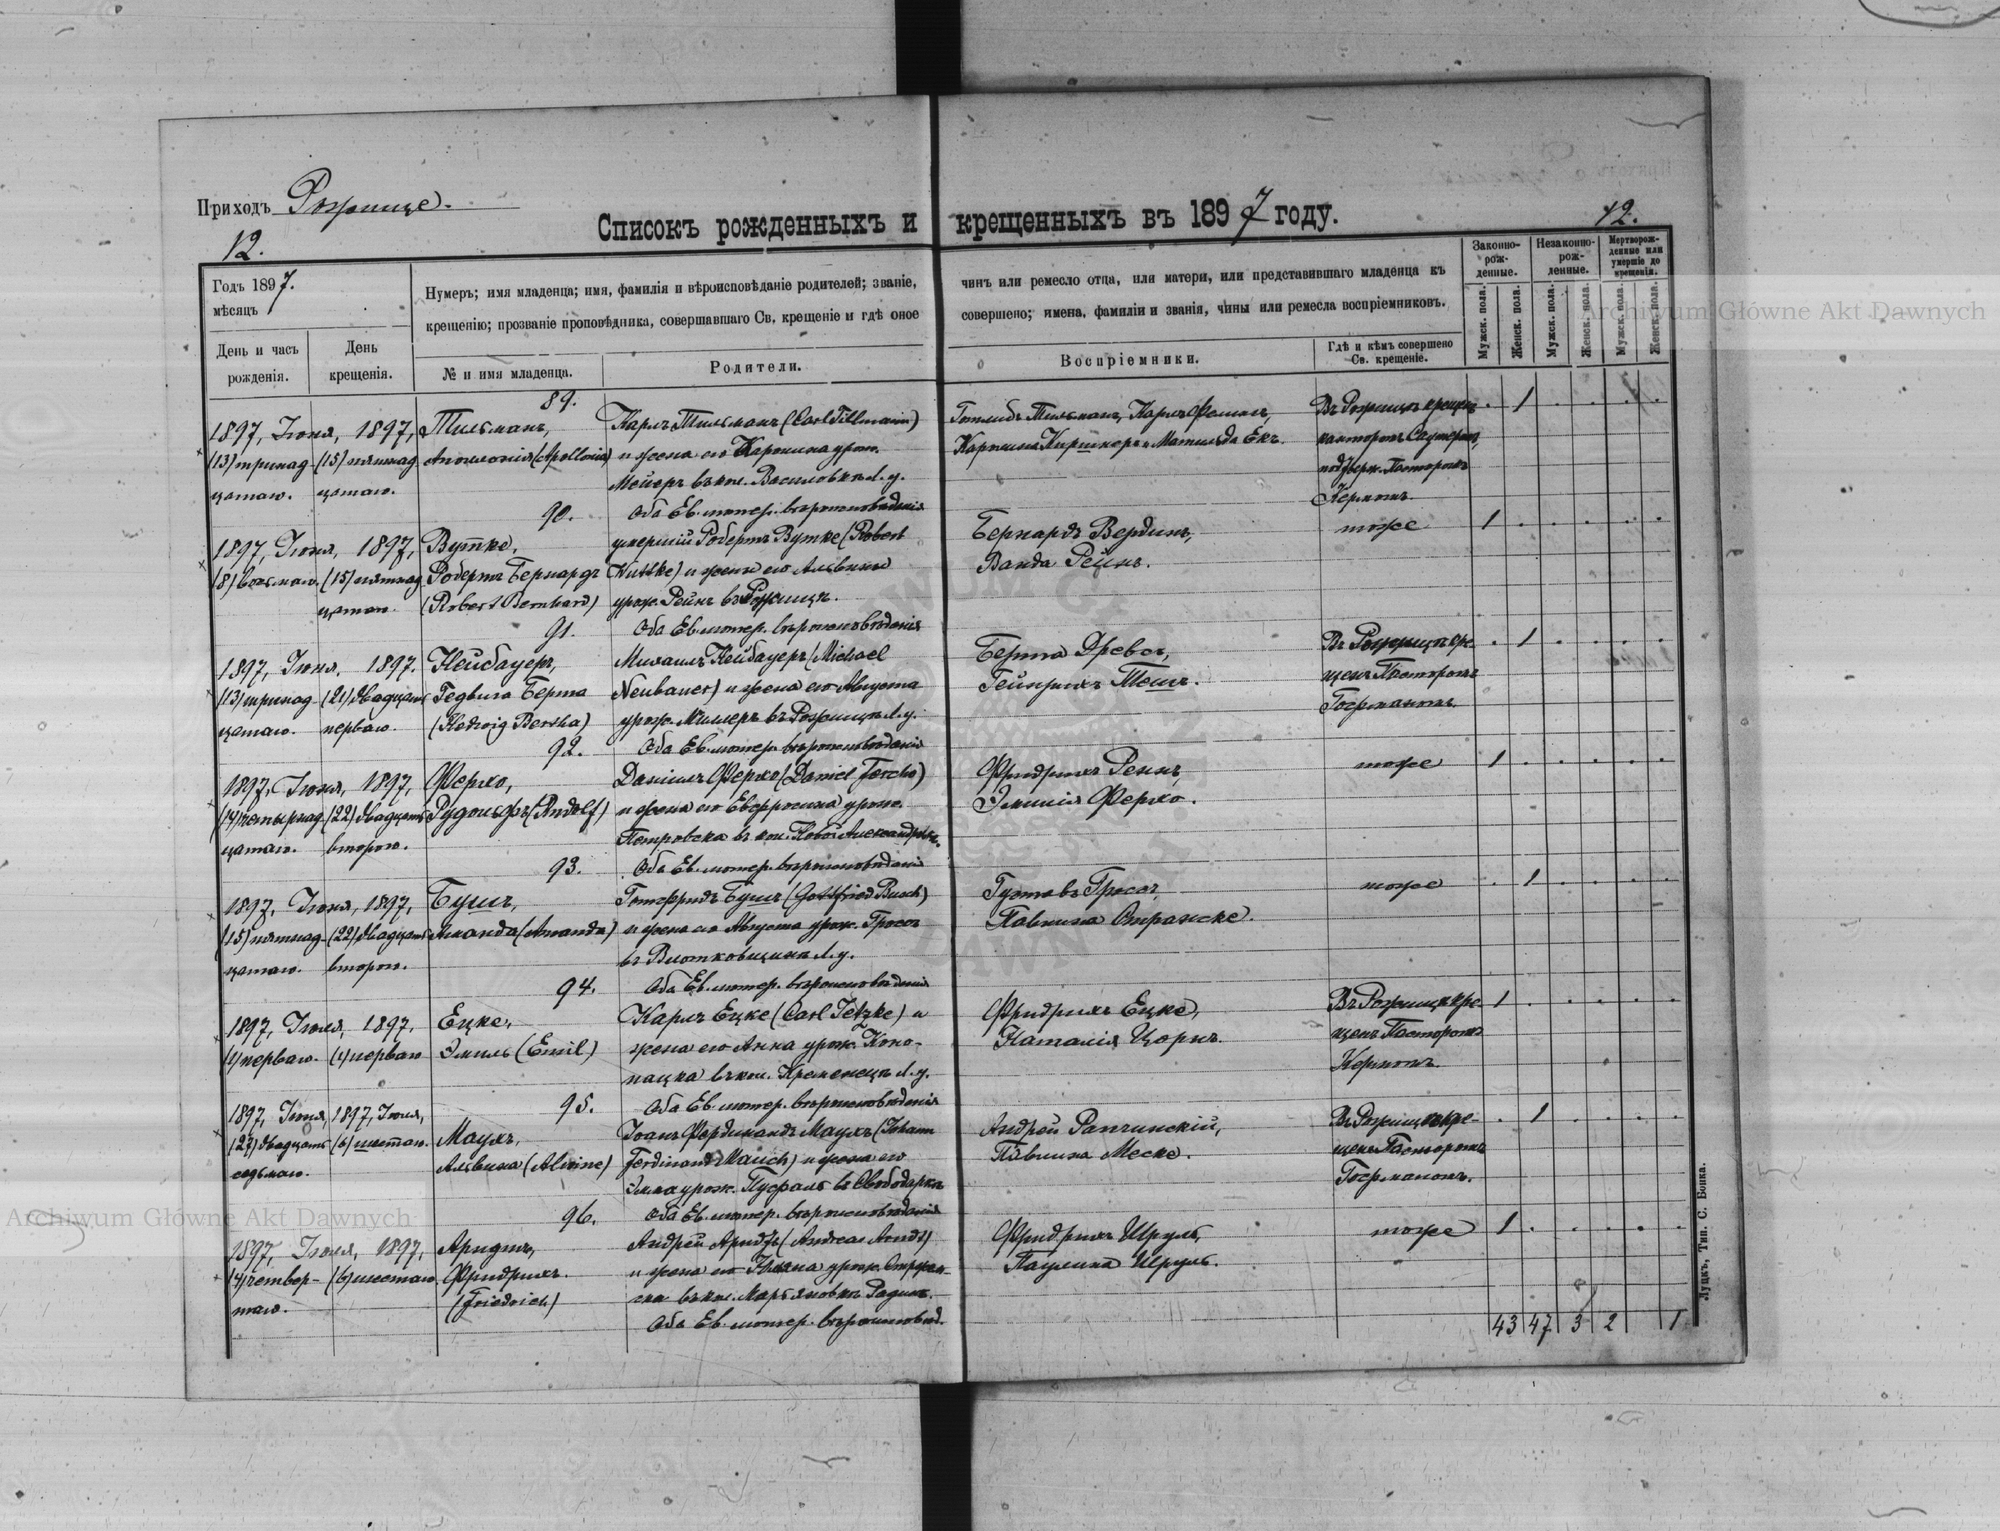 Приходъ Рожище.
Списокъ рожденныхъ и крещенныхъ въ 1897 году.
12.
12.
Годъ 1897.
мѣсяцъ
Нумеръ; имя младенца; имя, фамилія и вѣроисповѣданіе родителей; званіе, чинъ или ремесло отца, или матери, или представившаго младенца къ
крещенію; прозваніе проповѣдника, совершавшаго Св. крещеніе и гдѣ оное совершено; имена, фамиліи и званія, чины или ремесла воспріемниковъ.
Законно-
рож-
денные.
Незаконно-
рож-
денные.
Мертворож-
денные или
умершіе до
крещенія.
Мужск. пола.
Женск. пола.
Мужск. пола.
Женск. пола.
Мужск. пола.
Женск. пола.
День и часъ
рожденія.
День
крещенія.
№ и имя младенца.
Родители.
Воспріемники.
Гдѣ и кѣмъ совершено
Св. крещеніе.
89.
1897, Іюня,
(13) тринад-
цатаго.
1897,
(15) пятнад
цатаго.
Тильманъ,
Аполлонія (Apollonia)
Карлъ Тильманъ (Carl Tillmann)
и жена его Каролина урож.
Мейеръ въ кол. Василовкѣ Л. у.
Оба Ев. лютер. вѣроисповѣданія
Готлибъ Тильманъ, Карлъ
Каролина Киршнеръ и Матильда Екъ.
Въ Рожищѣ крещенъ
канторомъ
подтверж. Пасторомъ
Керномъ.
1
90.
1897, Іюня,
(8) восьмаго.
1897,
(15) пятнад
цатаго.
Вутке,
Робертъ Бернардъ
(Robert Bernhard)
умершій Робертъ Вутке (Robert
Wuttke) и жены его Альвины
урож. Рейнъ въ Рожищѣ.
Оба Ев. лютер. вѣроисповѣданія
Бернардъ Вердинъ,
Ванда Рейнъ.
тоже
1
91.
1897, Іюня.
(13) тринад
цатаго.
1897.
(21) двадцать
перваго.
Нейбауеръ,
Гедвига Берта
(Hedwig Bertha)
Михаилъ Нейбауеръ (Michael
Neubauer) и жена его Августа
урож. Миллеръ въ Рожищѣ Л. у.
Оба Ев. лютер. вѣроисповѣданія
Берта Древсъ,
Гейнрихъ Тешъ.
Въ Рожищѣ кре-
щенъ Пасторомъ
Госрманомъ.
1
92.
1897, Іюня,
(14) четырнад
цатаго.
1897,
(22) двадцать
второго.
Ферхо,
Рудольфъ (Rudolf)
Даніилъ Ферхо (Daniel Fercho)
и жена его Евфросина урож.
Петровска въ кол. Новой Александровкѣ.
Оба Ев. лютер. вѣроисповѣданія
Фридрихъ Ренъ,
Эмилія Ферхо.
тоже
1
93.
1897, Іюня,
(15) пятнад-
цатаго.
1897,
(22) двадцать
второго.
Бушъ,
Аманда (Amanda)
Готфридъ Бушъ (Gottfried Busch)
и жена его Августа урож. Гросъ
въ Л. у.
Оба Ев. лютер. вѣроисповѣданія
Густавъ Гросъ,
Павлина Отражске.
тоже
1
94.
1897, Іюля,
(1) перваго.
1897.
(1) перваго
Ецке,
Эмиль (Emil)
Карлъ Ецке (Carl Jetzke) и
жена его Анна урож. Коно-
пацка въ кол. Кременецъ Л. у.
Оба Ев. лютер. вѣроисповѣданія
Фридрихъ Ецке,
Наталія Цорнъ.
Въ Рожищѣ кре-
щенъ Пасторомъ
Керномъ.
1
95.
1897, Іюня,
(27) двадцать
седьмаго.
1897, Іюля,
(6) шестаго.
Маухъ,
Альвина (Alwine)
Іоанъ Фердинандъ Маухъ (Johann
Ferdinand Mauch) и жена его
Эмма урож. въ Свободаркѣ
Оба Ев. лютер. вѣроисповѣданія
Андрей Рапчинскій,
Павлина Меске.
Въ Рожищѣ кре-
щенъ Пасторомъ
Госрманомъ.
1
96.
1897, Іюля,
(4) четвер-
таго.
1897,
(6) шестаго.
Арндтъ,
Фридрихъ.
(Friedrich)
Андрей Арндтъ (Andreas Arndt)
и жена его урож.
въ кол. Марьяновкѣ
Оба Ев. лютер. вѣроисповѣд.
Фридрихъ Шруль,
Паулина Шруль.
тоже
1
43 47 3 2 1
Луцкъ, Тип. С. Бонка.
Archiwum Główne Akt Dawnych
Archiwum Główne Akt Dawnych